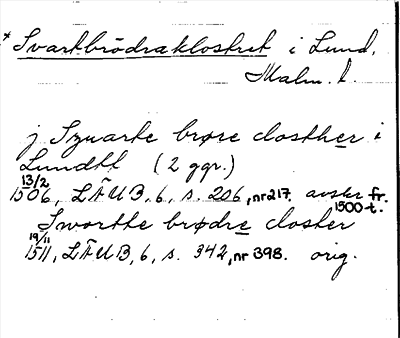 * Svartbrödraklostret i Lund.
Malm. l.
j Szwarte brøre closther i
Lundtt (2 ggr.)
13/2
1506, LÄUB, 6, s. 206, nr 217. avskr fr.
1500-t.
Swortte brødre closter
19/11
1511, LÄUB, 6, s. 342, nr 398. orig.